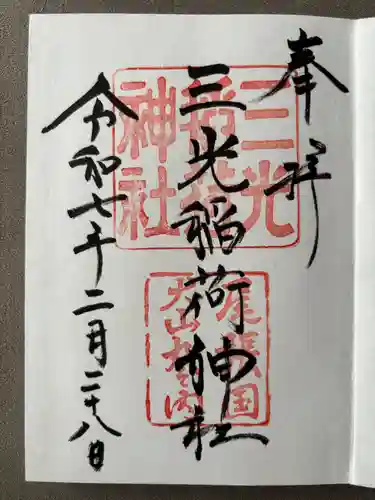 奉拝
三光稲荷神社
令和七年二月二十八日
三光
稲荷
神社
尾張国
犬山城内